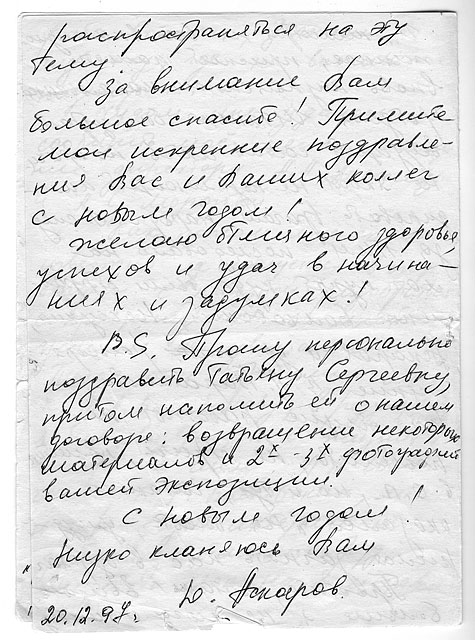 распространяться на эту
тему
за внимание Вам
большое спасибо! Примите
мои искренние поздравле-
ния Вас и Ваших коллег
с новым годом!
желаю отличного здоровья,
успехов и удач в начина-
ниях и задумках!
P.S. Прошу персонально
поздравить Татьяну Сергеевну,
притом напомнить ей о нашем
договоре: возвращение некоторых
материалов и 2х-3х фотографий
вашей экспозиции.
С новым годом!
Низко кланяюсь Вам
20.12.97г.